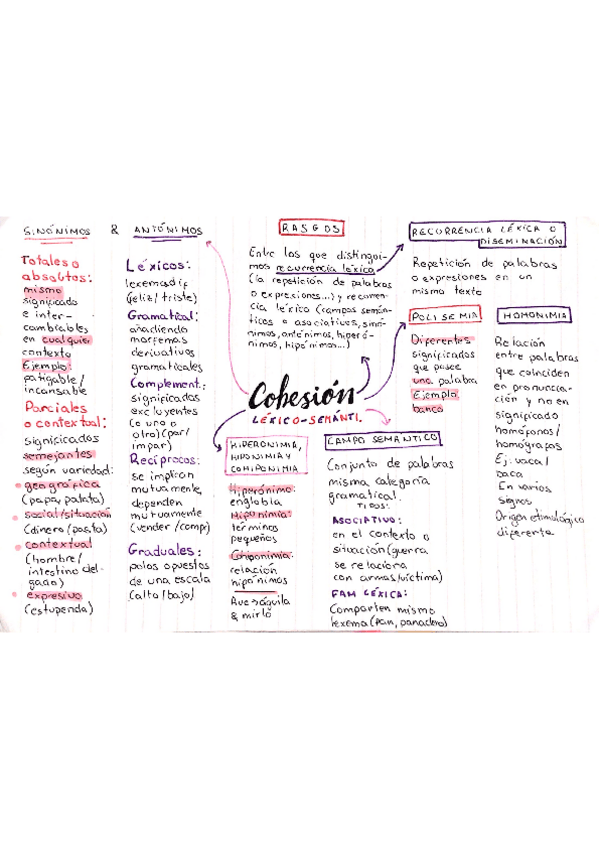 SINÓNIMOS & ANTÓNIMOS
Totales o
absolutos:
mismo
significado
e inter-
cambiables
en cualquier
contexto
Ejemplo:
fatigable/
incansable
Parciales
o contextual:
significados
semejantes
según variedad:
geográfica
(papa, patata)
social/situación
(dinero/pasta)
contextual
(hombre/
intestino del-
gado)
expresivo
(estupenda)
Léxicos:
lexema dif
(feliz/triste)
Gramatical:
añadiendo
morfemas
derivativos
gramaticales
Complement.:
significados
excluyentes
(o uno o
otro) (par/
impar)
Recíprocos:
se implican
mutuamente,
dependen
mutuamente
(vender/compr)
Graduales:
polos opuestos
de una escala
(alto/bajo)
RASGOS
Entre los que distingui-
mos recurrencia léxica
(la repetición de palabras
o expresiones...) y recurren-
cia léxico (campos semán-
ticos o asociativos, sinó-
nimos, antónimos, hiperó-
nimos, hipónimos...)
Cohesión
LÉXICO-SEMÁNTI.
HIPERONIMIA,
HIPONIMIA Y
COHIPONIMIA
Hiperónimo:
englobla
Hiponimia:
términos
pequeños
Cohiponimia:
relación
hipónimos
Ave → águila
& mirlo
CAMPO SEMÁNTICO
Conjunto de palabras
misma categoría
gramatical.
TIPOS:
ASOCIATIVO:
en el contexto o
situación (guerra
se relaciona
con armas/víctima)
FAM LÉXICA:
Comparten mismo
lexema (pan, panadero)
RECURRENCIA LÉXICA O
DISEMINACIÓN
Repetición de palabras
o expresiones en un
mismo texto
POLISEMIA
Diferentes
significados
que posee
una palabra
Ejemplo
banco
HOMONIMIA
Relación
entre palabras
que coinciden
en pronuncia-
ción y no en
significado
homófonos/
homógrafas
Ej: vaca/
baca
En varios
signos
Origen etimológico
diferente